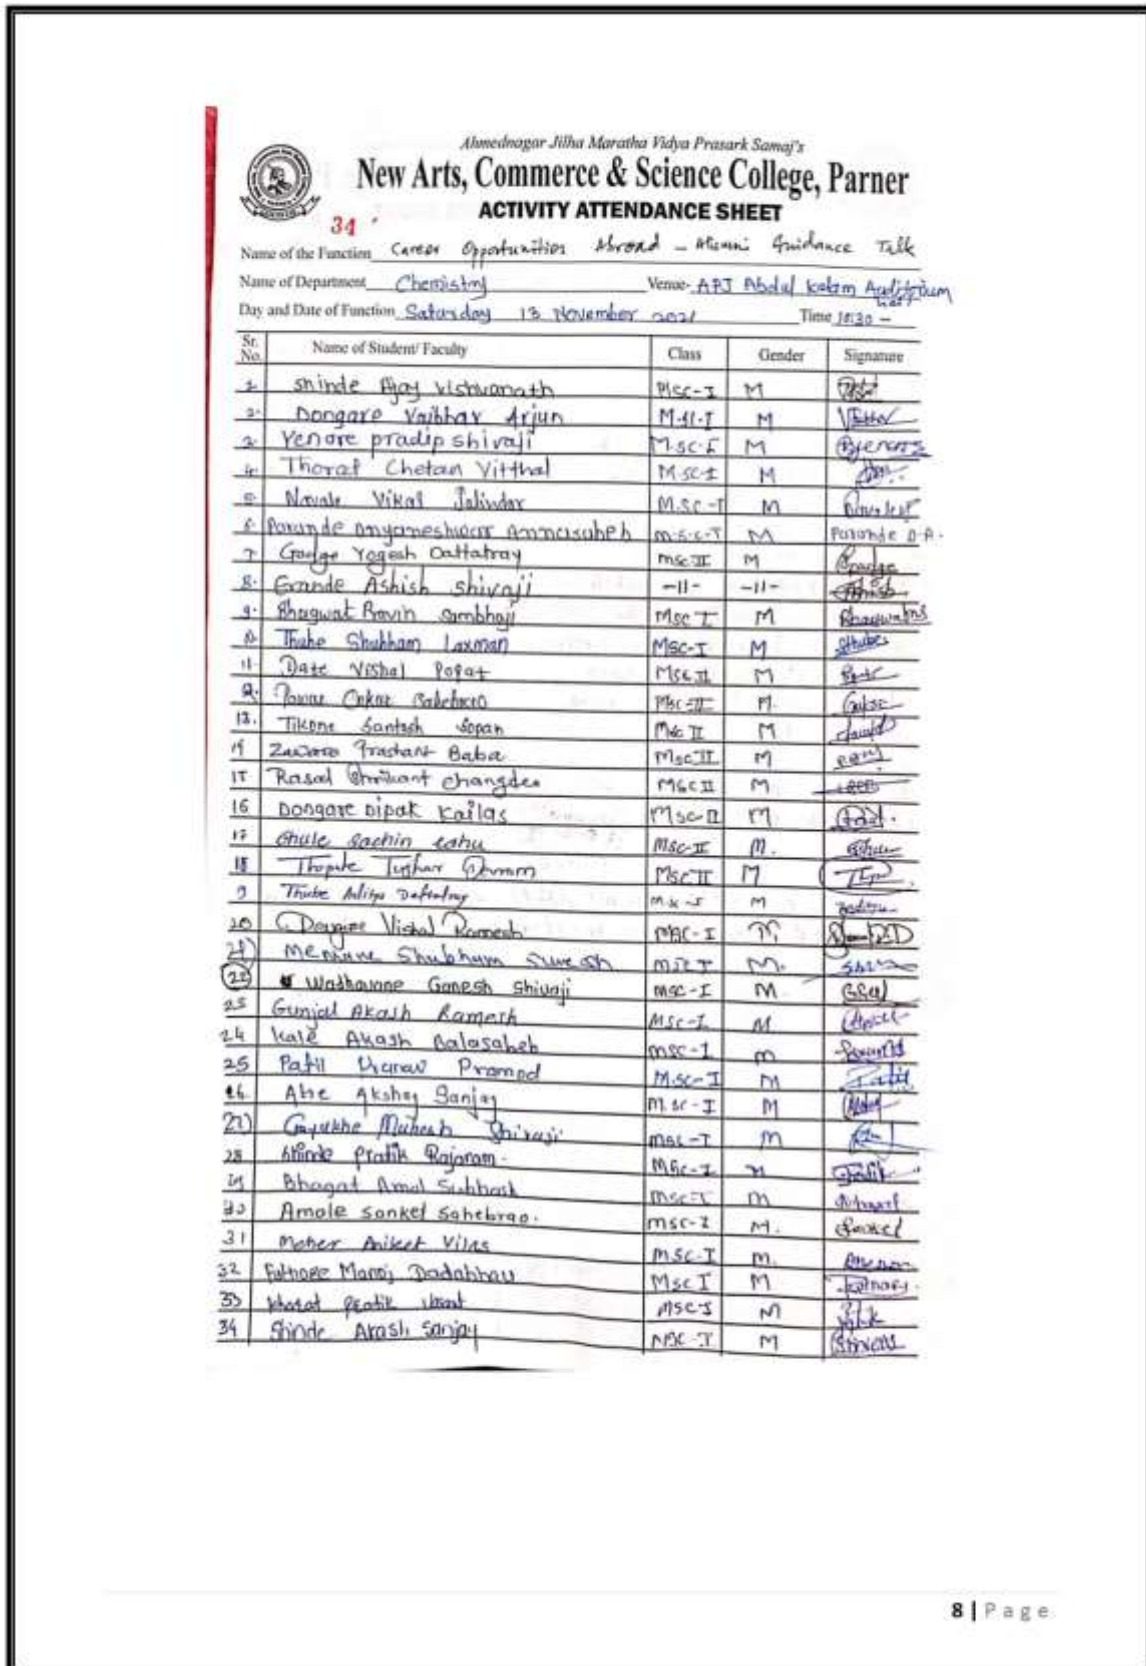 Ahmednagar Jilha Maratha Vidya Prasark Samaj's
New Arts, Commerce & Science College, Parner
ACTIVITY ATTENDANCE SHEET
34
Name of the Function Career Opportunities Abroad - Alumni Guidance Talk
Name of Department Chemistry Venue- APJ Abdul Kalam Auditorium
Day and Date of Function Saturday 13 November 2021 Time 10:30 -
Sr. No. Name of Student/ Faculty Class Gender Signature
1 Shinde Ajay Vishwanath MSC-I M
2. Dongare Vaibhav Arjun M.SC-I M
3. Yenare pradip shivaji M.SC-I M
4. Thorat Chetan Vitthal M.SC-I M
5 Navale Vikas Jalindar M.SC-I M
6 Parande Dnyaneshwar Annasaheb M.S.C-I M Parande D.A.
7 Gadge Yogesh Dattatray MSC II M Gadge
8. Grande Ashish Shivaji -11- -11- Ashish
9. Bhagwat Pravin Sambhaji MSC I M Bhagwat
10 Thube Shubham Laxman MSC-I M Sthube
11 Date Vishal Popat MSC II M
12. Pawar Onkar MSC-II M.
13. Tikone Santosh Sopan MSC II M
14 Zaware Prashant Baba MSC II M
15 Rasal Shrikant Changdeo MSC II M
16 Dongare Dipak Kailas MSC-II M
17 Ghule Sachin Lahu MSC-II M.
18 Thopate Tushar MSC II M
9 Thube Aditya Dattatray M.SC-I M
20 Dongare Vishal Ramesh MSC-I M
21) Memane Shubham Suresh MSC I M.
22 Wadhavane Ganesh Shivaji MSC-I M
23 Gunjal Akash Ramesh MSC-I M
24 Kale Akash Balasaheb MSC-I M
25 Patil Pranav Pramod M.SC-I M Patil
26. Abe Akshay Sanjay M.SC-I M
27) Gayukhe Mahesh Shivaji MSC-I M
28 Shinde Pratik Rajaram. MSC-I M Pratik
29 Bhagat Amol Subhash MSC-I M
30 Amole Sanket Sahebrao. MSC-I M. Sanket
31 Moher Aniket Vilas MSC-I M.
32 Manoj Dadabhau MSC I M
33 Kharat Pratik MSC-I M
34 Shinde Akash Sanjay MSC-I M
8 | Page